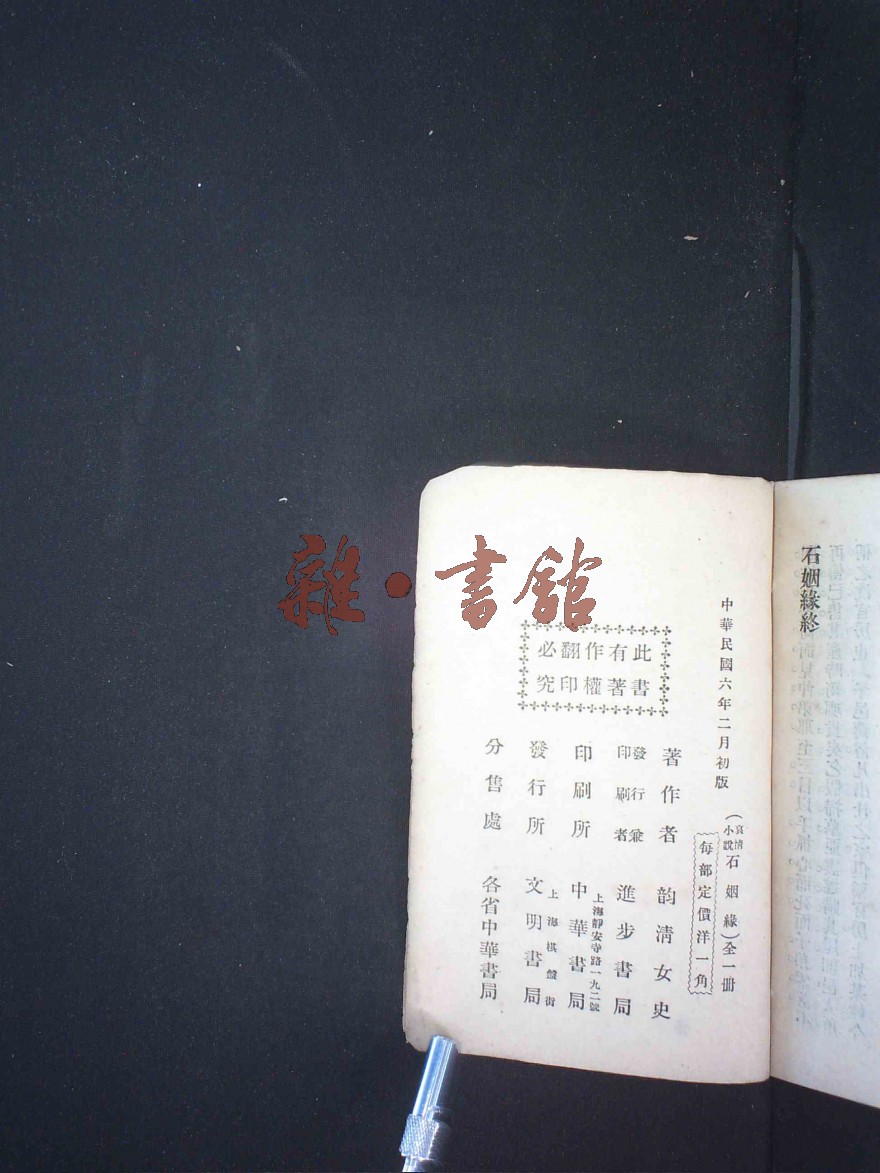 雜·書館
石姻緣終
中華民國六年二月初版
(哀情小說石姻緣)全一冊
每部定價洋一角
此書有著作權翻印必究
著作者 韵清女史
發行兼印刷者 進步書局
印刷所 上海靜安寺路一九二號 中華書局
發行所 上海棋盤街 文明書局
分售處 各省中華書局